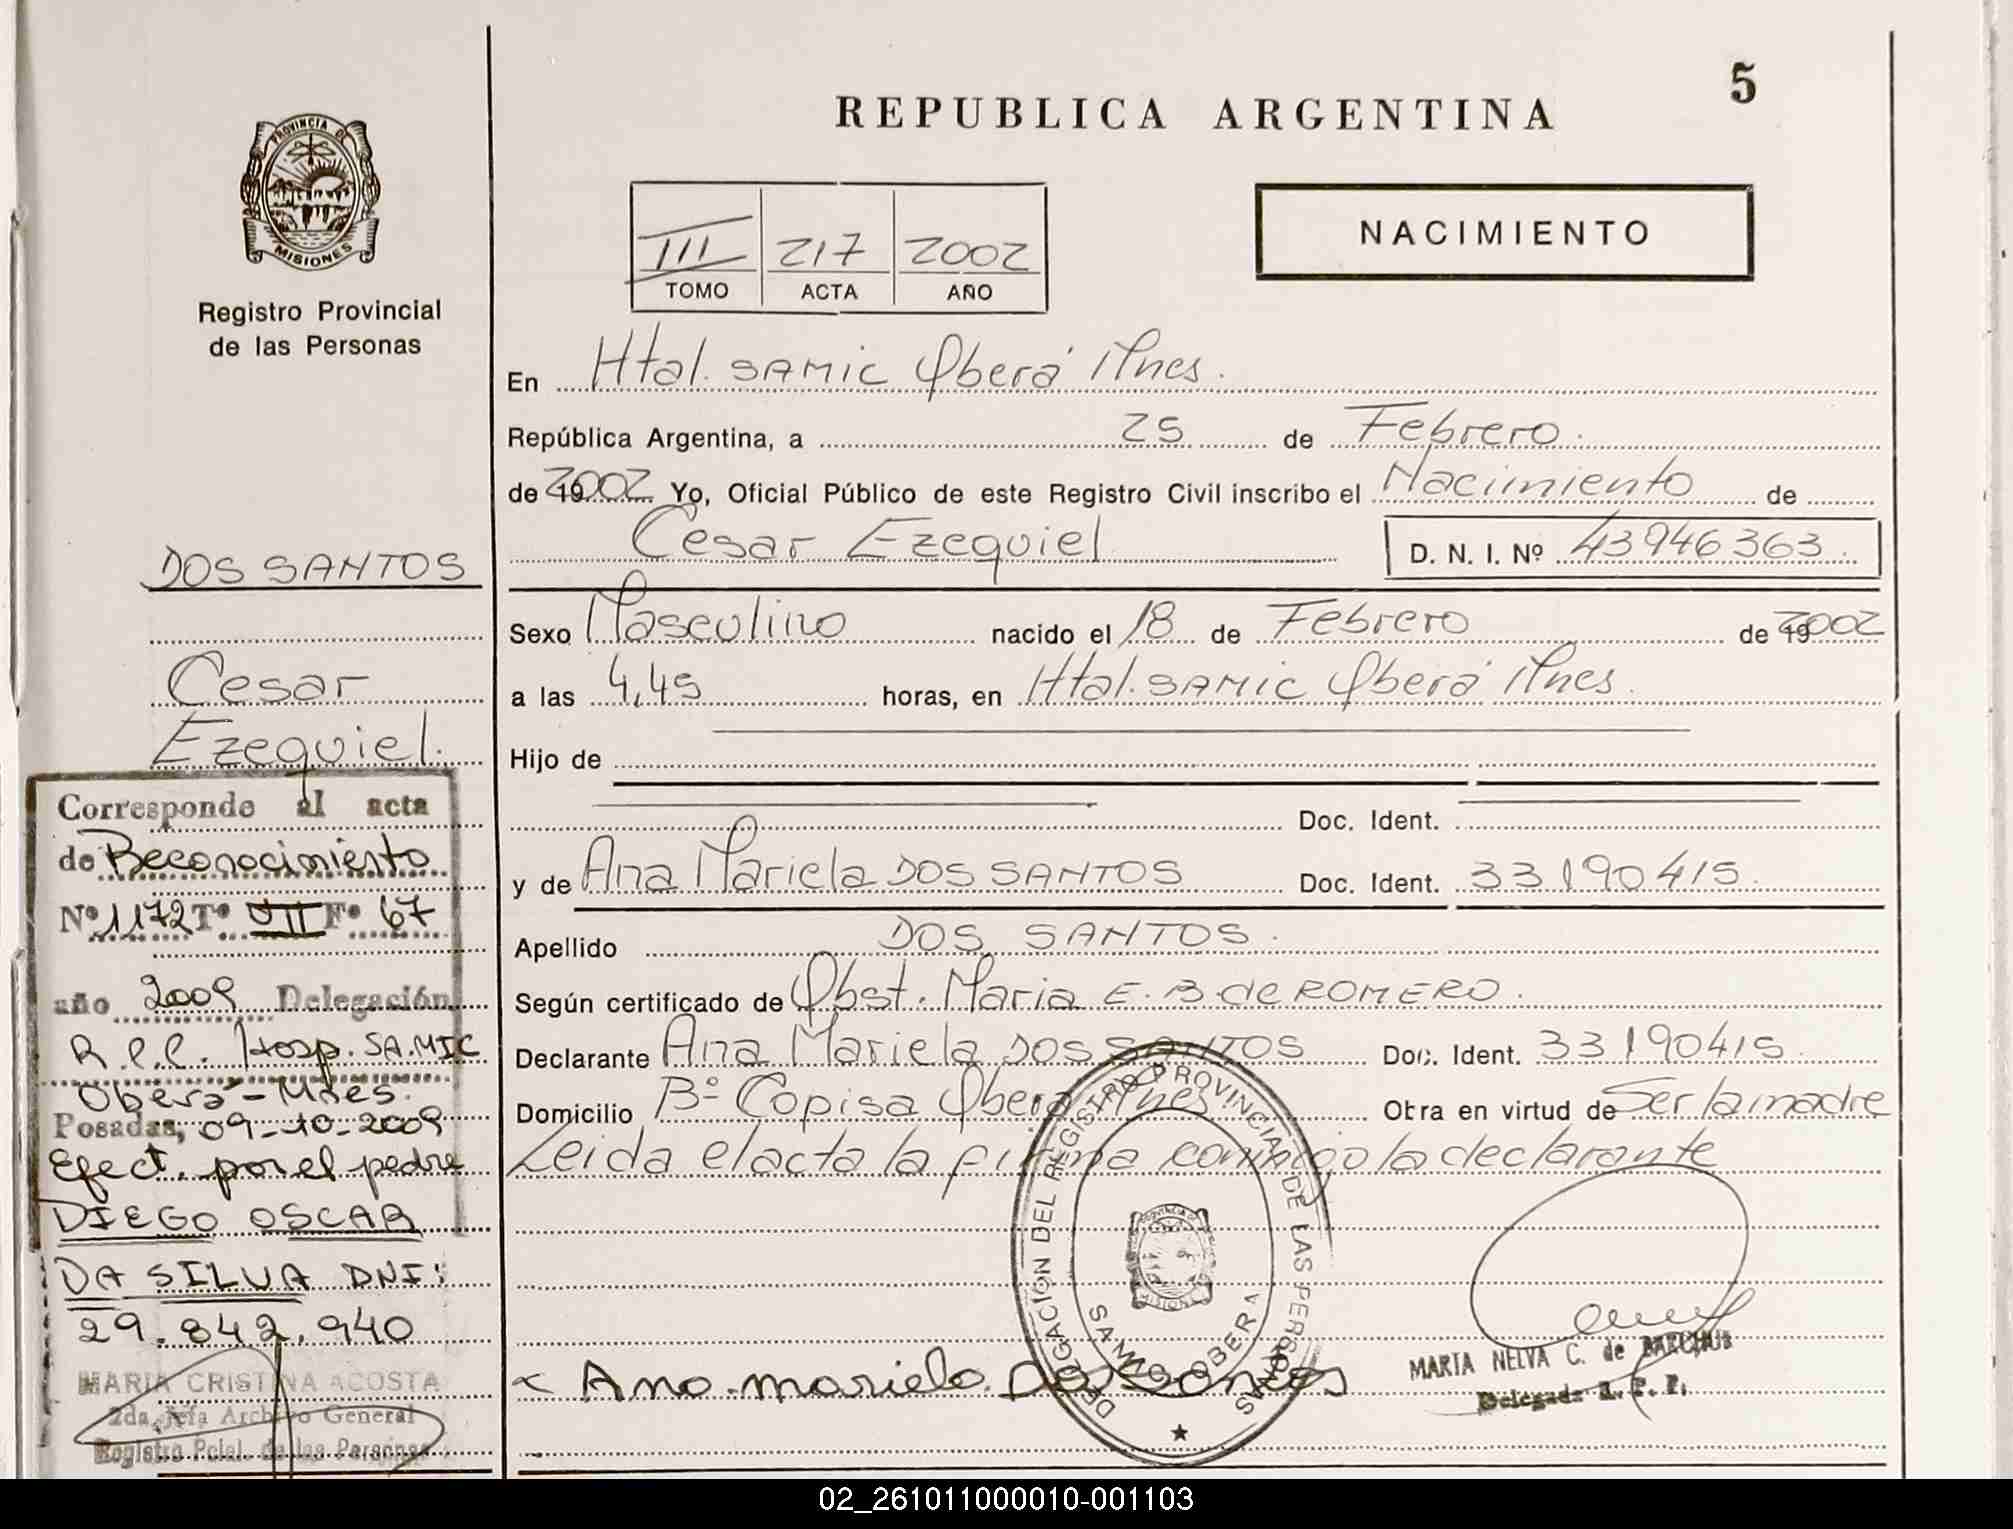 5
REPUBLICA ARGENTINA
PROVINCIA DE
MISIONES
Registro Provincial
de las Personas
III 217 2002
TOMO ACTA AÑO
NACIMIENTO
En Htal. SAMIC Oberá Mnes.
República Argentina, a 25 de Febrero.
de 19 2002 Yo, Oficial Público de este Registro Civil inscribo el Nacimiento de
Cesar Ezequiel D. N. I. Nº 43946363.
Sexo Masculino nacido el 18 de Febrero de 19 2002
a las 4,45 horas, en Htal. SAMIC Oberá Mnes.
Hijo de
Doc. Ident.
y de Ana Mariela DOS SANTOS Doc. Ident. 33190415.
Apellido DOS SANTOS.
Según certificado de Obst. Maria E. B de ROMERO.
Declarante Ana Mariela DOS SANTOS Doc. Ident. 33190415
Domicilio Bº Copisa Oberá Mnes. Obra en virtud de Ser la madre
Leida el acta la firma conmigo la declarante
DELEGACIÓN DEL REGISTRO PROVINCIAL DE LAS PERSONAS
PROVINCIA DE
MISIONES
SAMIC OBERA
x Ana mariela Dos Santos
MARIA NELVA C. de
Delegada R. P. P.
DOS SANTOS
Cesar
Ezequiel.
Corresponde al acta
de Reconocimiento
Nº 1172 Tº VII Fº 67
año 2009 Delegación
R.P.P. Hosp. SAMIC
Oberá - Mnes.
Posadas, 09-10-2009
Efect. por el padre
DIEGO OSCAR
DA SILVA DNI:
29.842.940
MARIA CRISTINA ACOSTA
2da. Jefa Archivo General
Registro Pcial. de las Personas
02_261011000010-001103